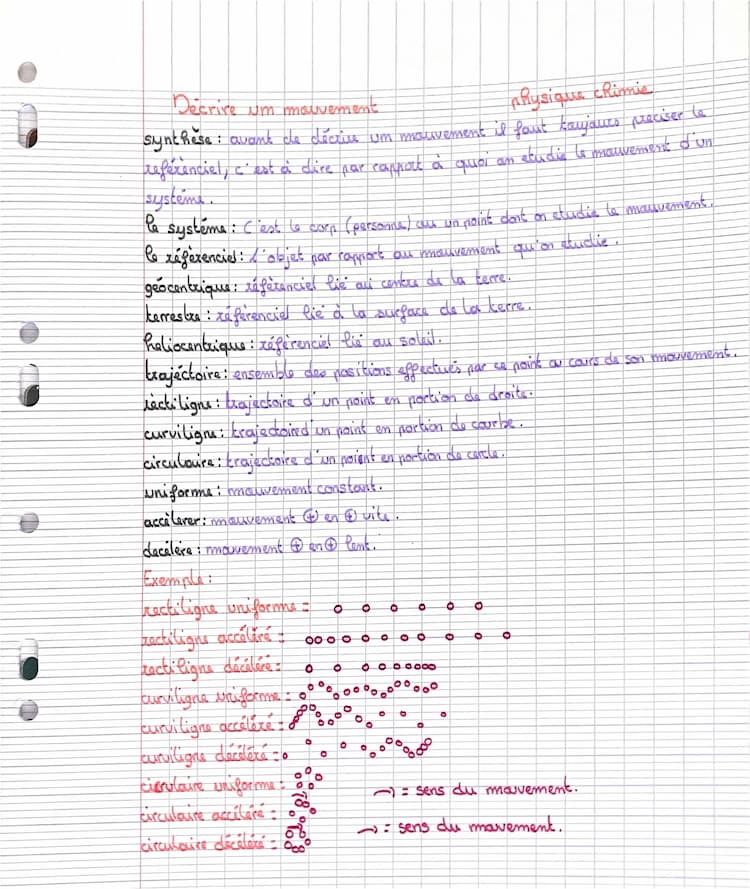 Décrire un mouvement
physique chimie
synthèse : avant de décrire un mouvement il faut toujours préciser le
référenciel, c'est à dire par rapport à quoi on etudie le mouvement d'un
système.
le système : C'est le corp (personne) ou un point dont on etudie le mouvement.
le référenciel : L'objet par rapport au mouvement qu'on etudie.
géocentrique : référenciel lié au centre de la terre.
terrestre : référenciel lié à la surface de la terre.
heliocentrique : référenciel lié au soleil.
trajéctoire : ensemble des positions effectués par ce point au cours de son mouvement.
rèctiligne : trajectoire d'un point en portion de droite.
curviligne : trajectoire d'un point en portion de courbe.
circulaire : trajectoire d'un poient en portion de cercle.
uniforme : mouvement constant.
accélerer : mouvement ⊕ en ⊕ vite.
decélère : mouvement ⊕ en ⊕ lent.
Exemple :
rectiligne uniforme =
rectiligne accéléré =
rectiligne décéléré =
curviligne uniforme =
curviligne accéléré =
curviligne décéléré =
circulaire uniforme =
→ = sens du mouvement.
circulaire accéléré =
→ = sens du mouvement.
circulaire décéléré =